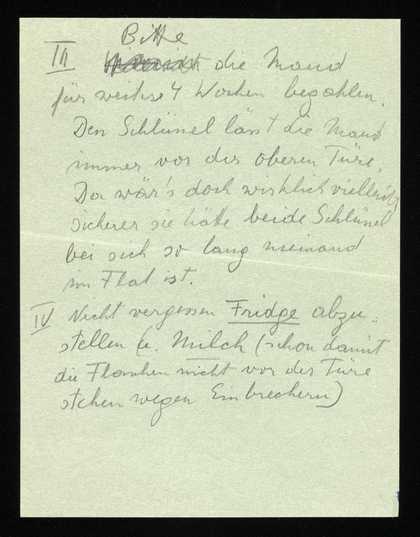 Bitte
III die Maud
für weitere 4 Wochen bezahlen.
Den Schlüssel lässt die Maud
immer vor der oberen Türe.
Da wär's doch wirklich vielleicht
sicherer sie hätte beide Schlüssel
bei sich so lang niemand
im Flat ist.
IV Nicht vergessen Fridge abzu-
stellen u. Milch (schon damit
die Flaschen nicht vor der Türe
stehen wegen Einbrechern)